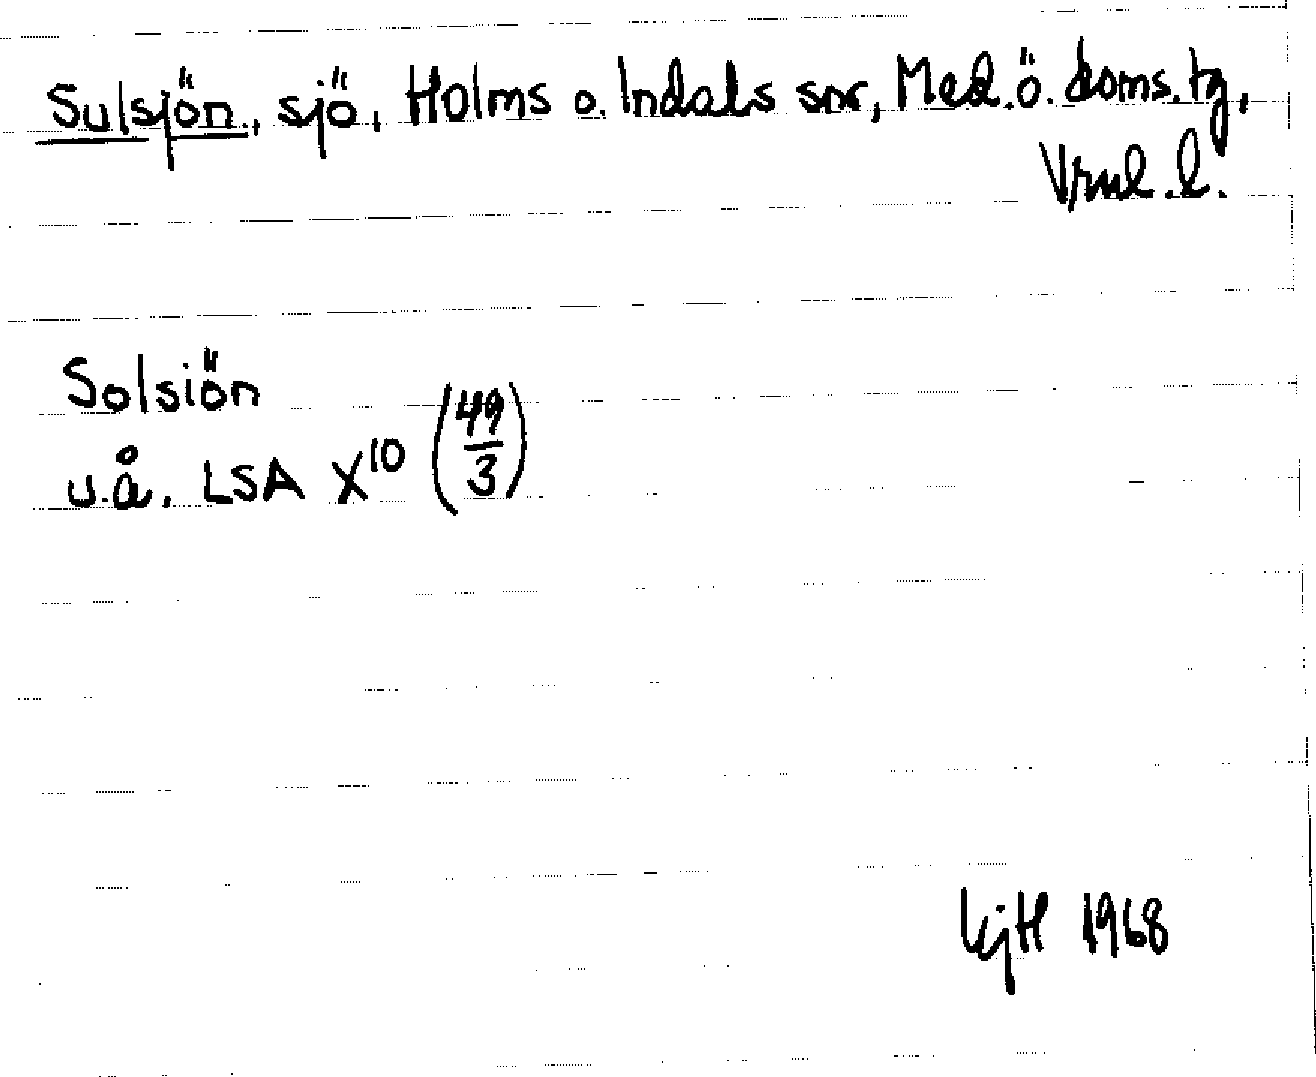 Sulsjön, sjö, Holms o. Indals snr, Med. ö. doms. tg,
Vrnl. l.
Solsiön
u.å. LSA X¹⁰ (49/3)
1968